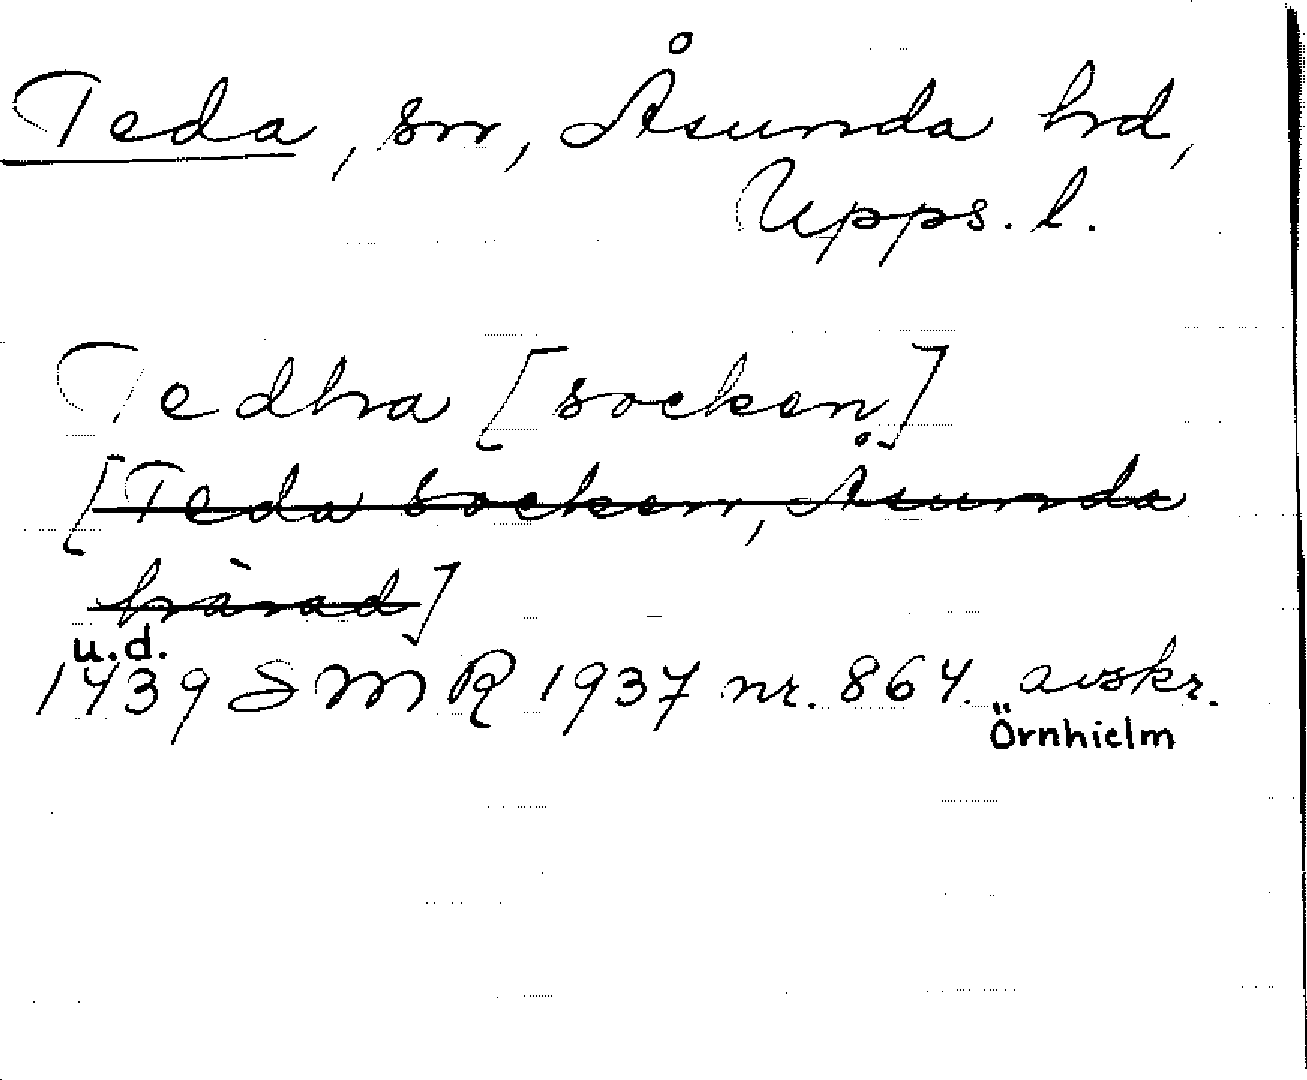 Teda, sn, Åsunda hd,
Upps. l.
Tedhra [socken]
[Teda socken, Åsunda
härad]
u.d.
1439 SMR 1937 nr. 864. avskr.
Örnhielm